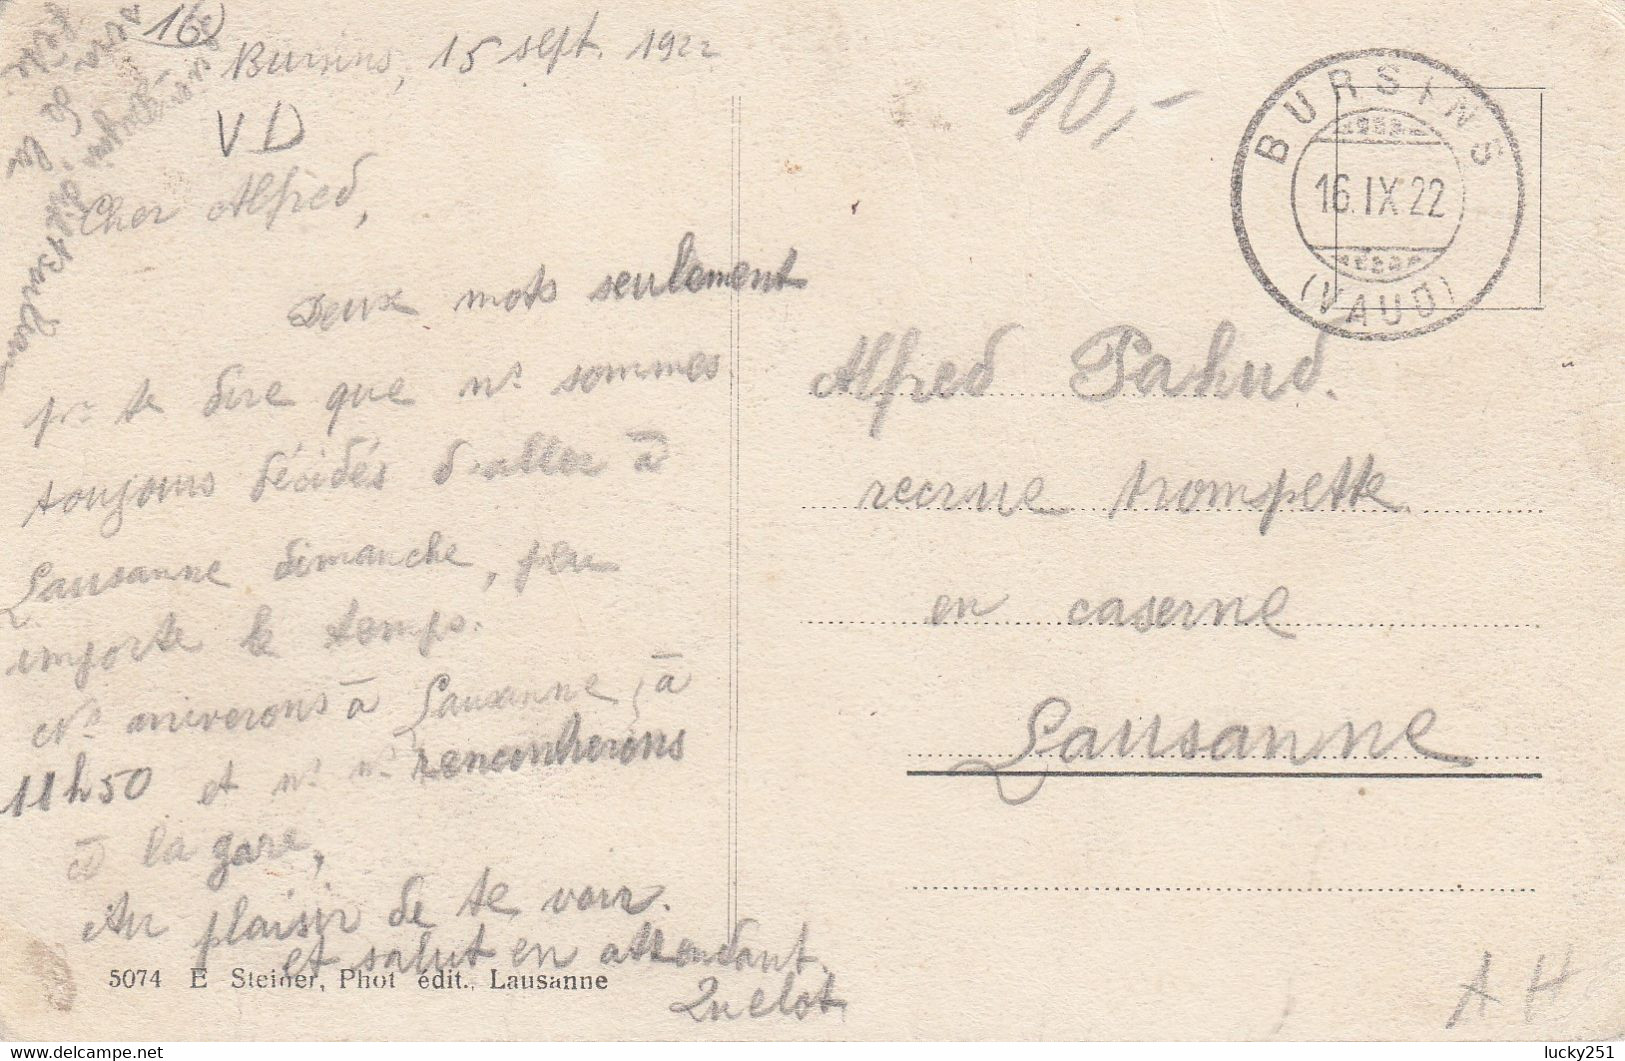 16
Bursins, 15 sept. 1922
VD
10,-
BURSINS
16.IX.22
(VAUD)
Cher Alfred,
Deux mots seulement
pr te dire que ns sommes
toujours décidés d'aller à
Lausanne dimanche, peu
importe le temps.
Ns arriverons à Lausanne, à
11h50 et ns ns rencontrerons
à la gare,
Au plaisir de te voir.
et salut en attendant.
5074 E Steiner, Phot édit., Lausanne
Alfred Pahud.
recrue trompette
en caserne
Lausanne
A H
lucky251